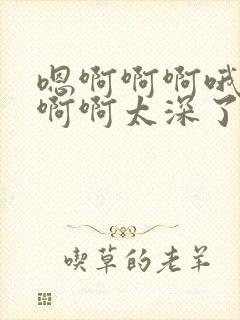 嗯啊啊啊哦
啊啊太深了
喫草的老羊